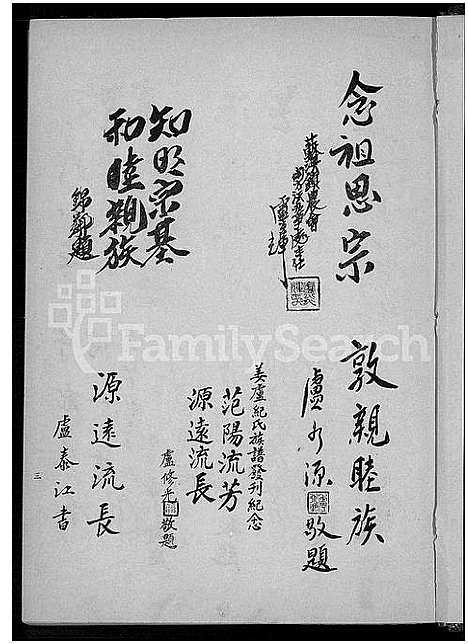 念祖思宗
知明宗基
和睦親族
錦郎題
敦親睦族
盧水源
敬題
姜盧紀氏族譜發刊紀念
范陽流芳
源遠流長
盧修光
敬題
源遠流長
盧泰江書
三
FamilySearch